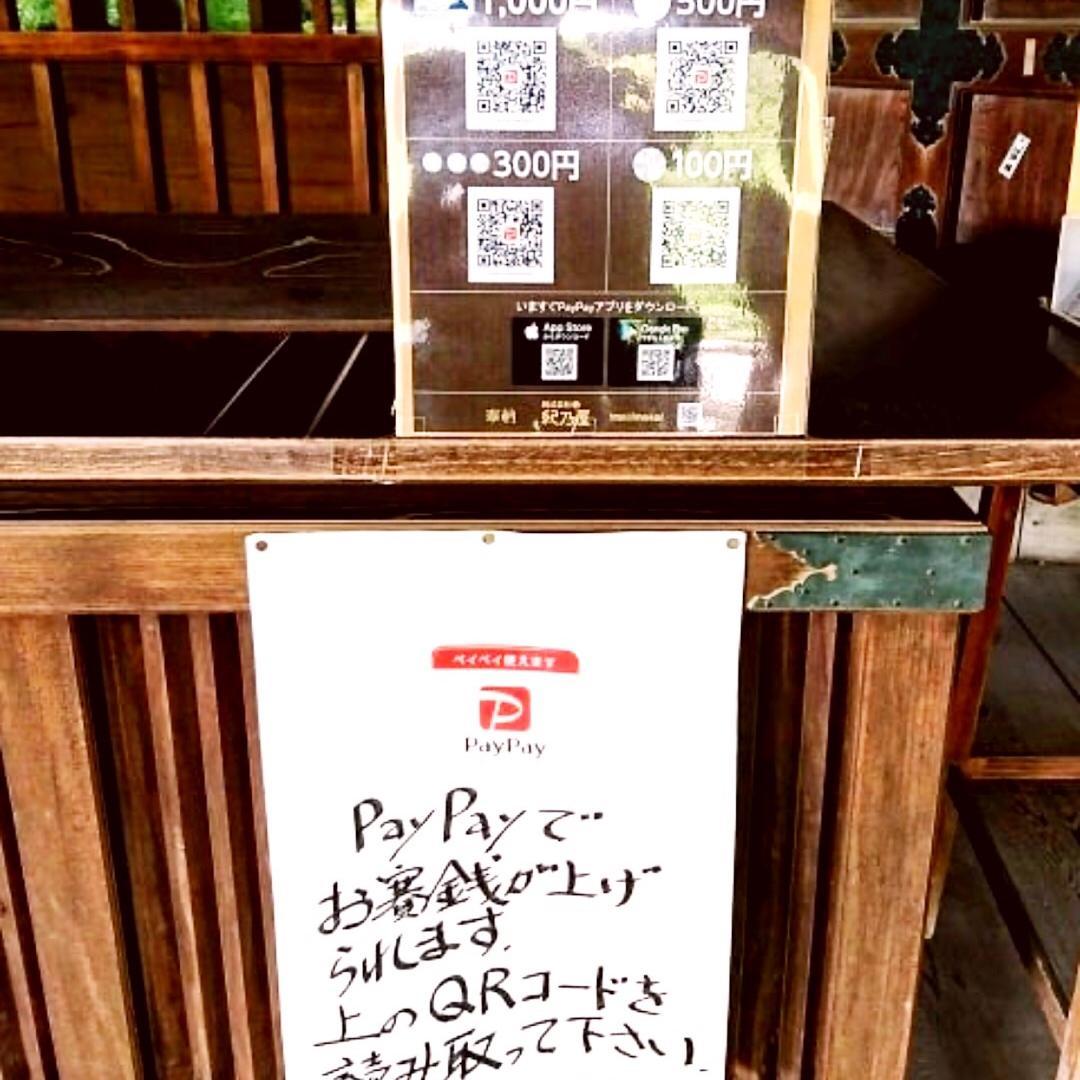 1,000円 500円
300円 100円
いますぐPayPayアプリをダウンロード
App Store
Google Play
奉納 株式会社 紀乃屋
ペイペイ使えます
PayPay
PayPayで
お賽銭が上げ
られします.
上のQRコードを
読み取って下さい.